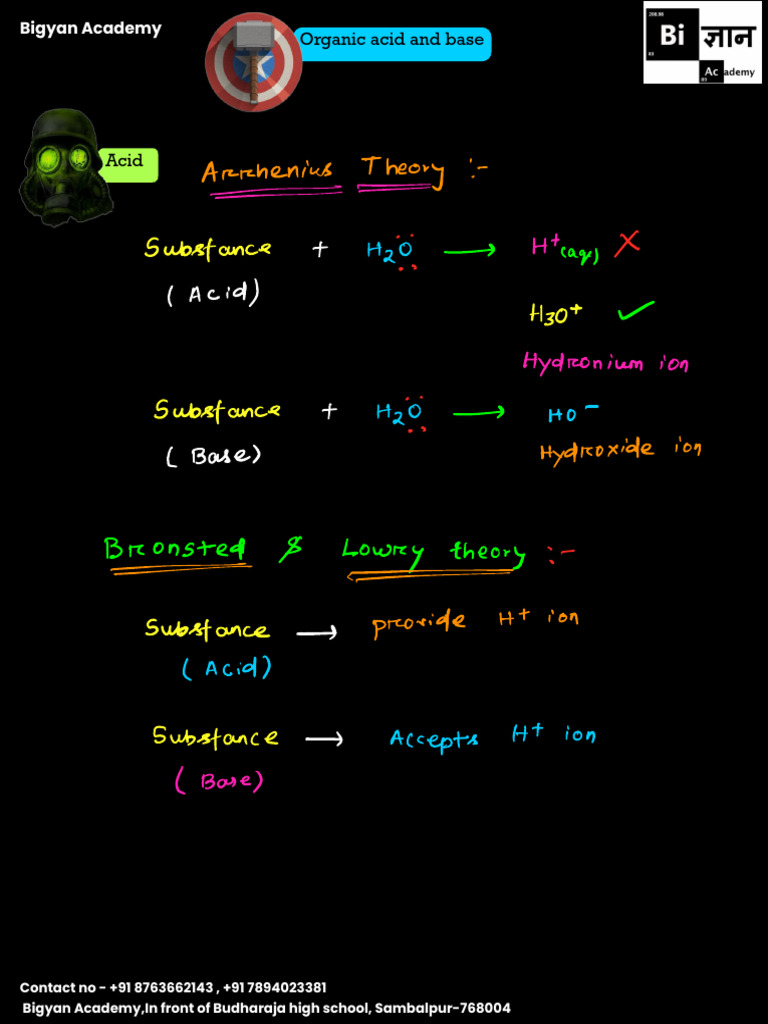 Bigyan Academy
Organic acid and base
208.98
Bi
ज्ञान
83
Academy
Acid
Arrhenius Theory :-
Substance + H2O → H+(aq) ✗
(Acid)
H3O+ ✓
Hydronium ion
Substance + H2O → HO−
(Base)
Hydroxide ion
Bronsted & Lowry theory :-
Substance → provide H+ ion
(Acid)
Substance → Accepts H+ ion
(Base)
Contact no - +91 8763662143 , +91 7894023381
Bigyan Academy,In front of Budharaja high school, Sambalpur-768004